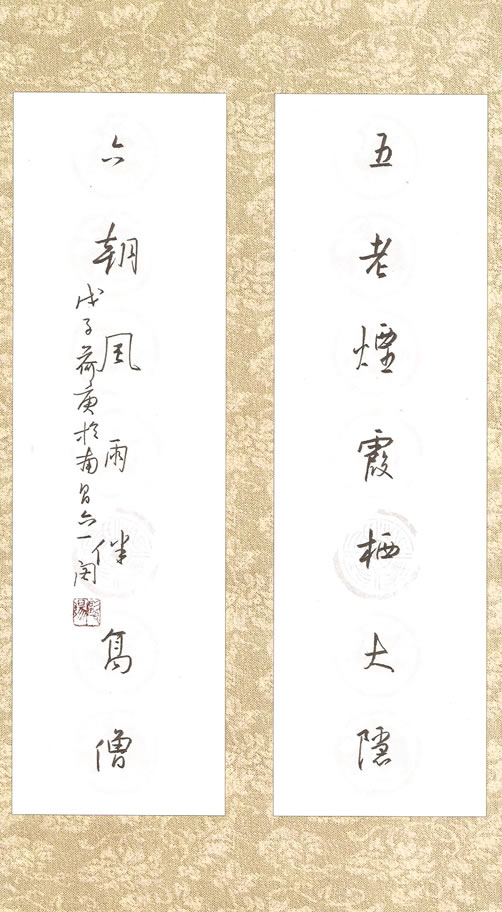 五老煙霞栖大隱
六朝風雨伴高僧
戊子荷庚於南昌六一阁